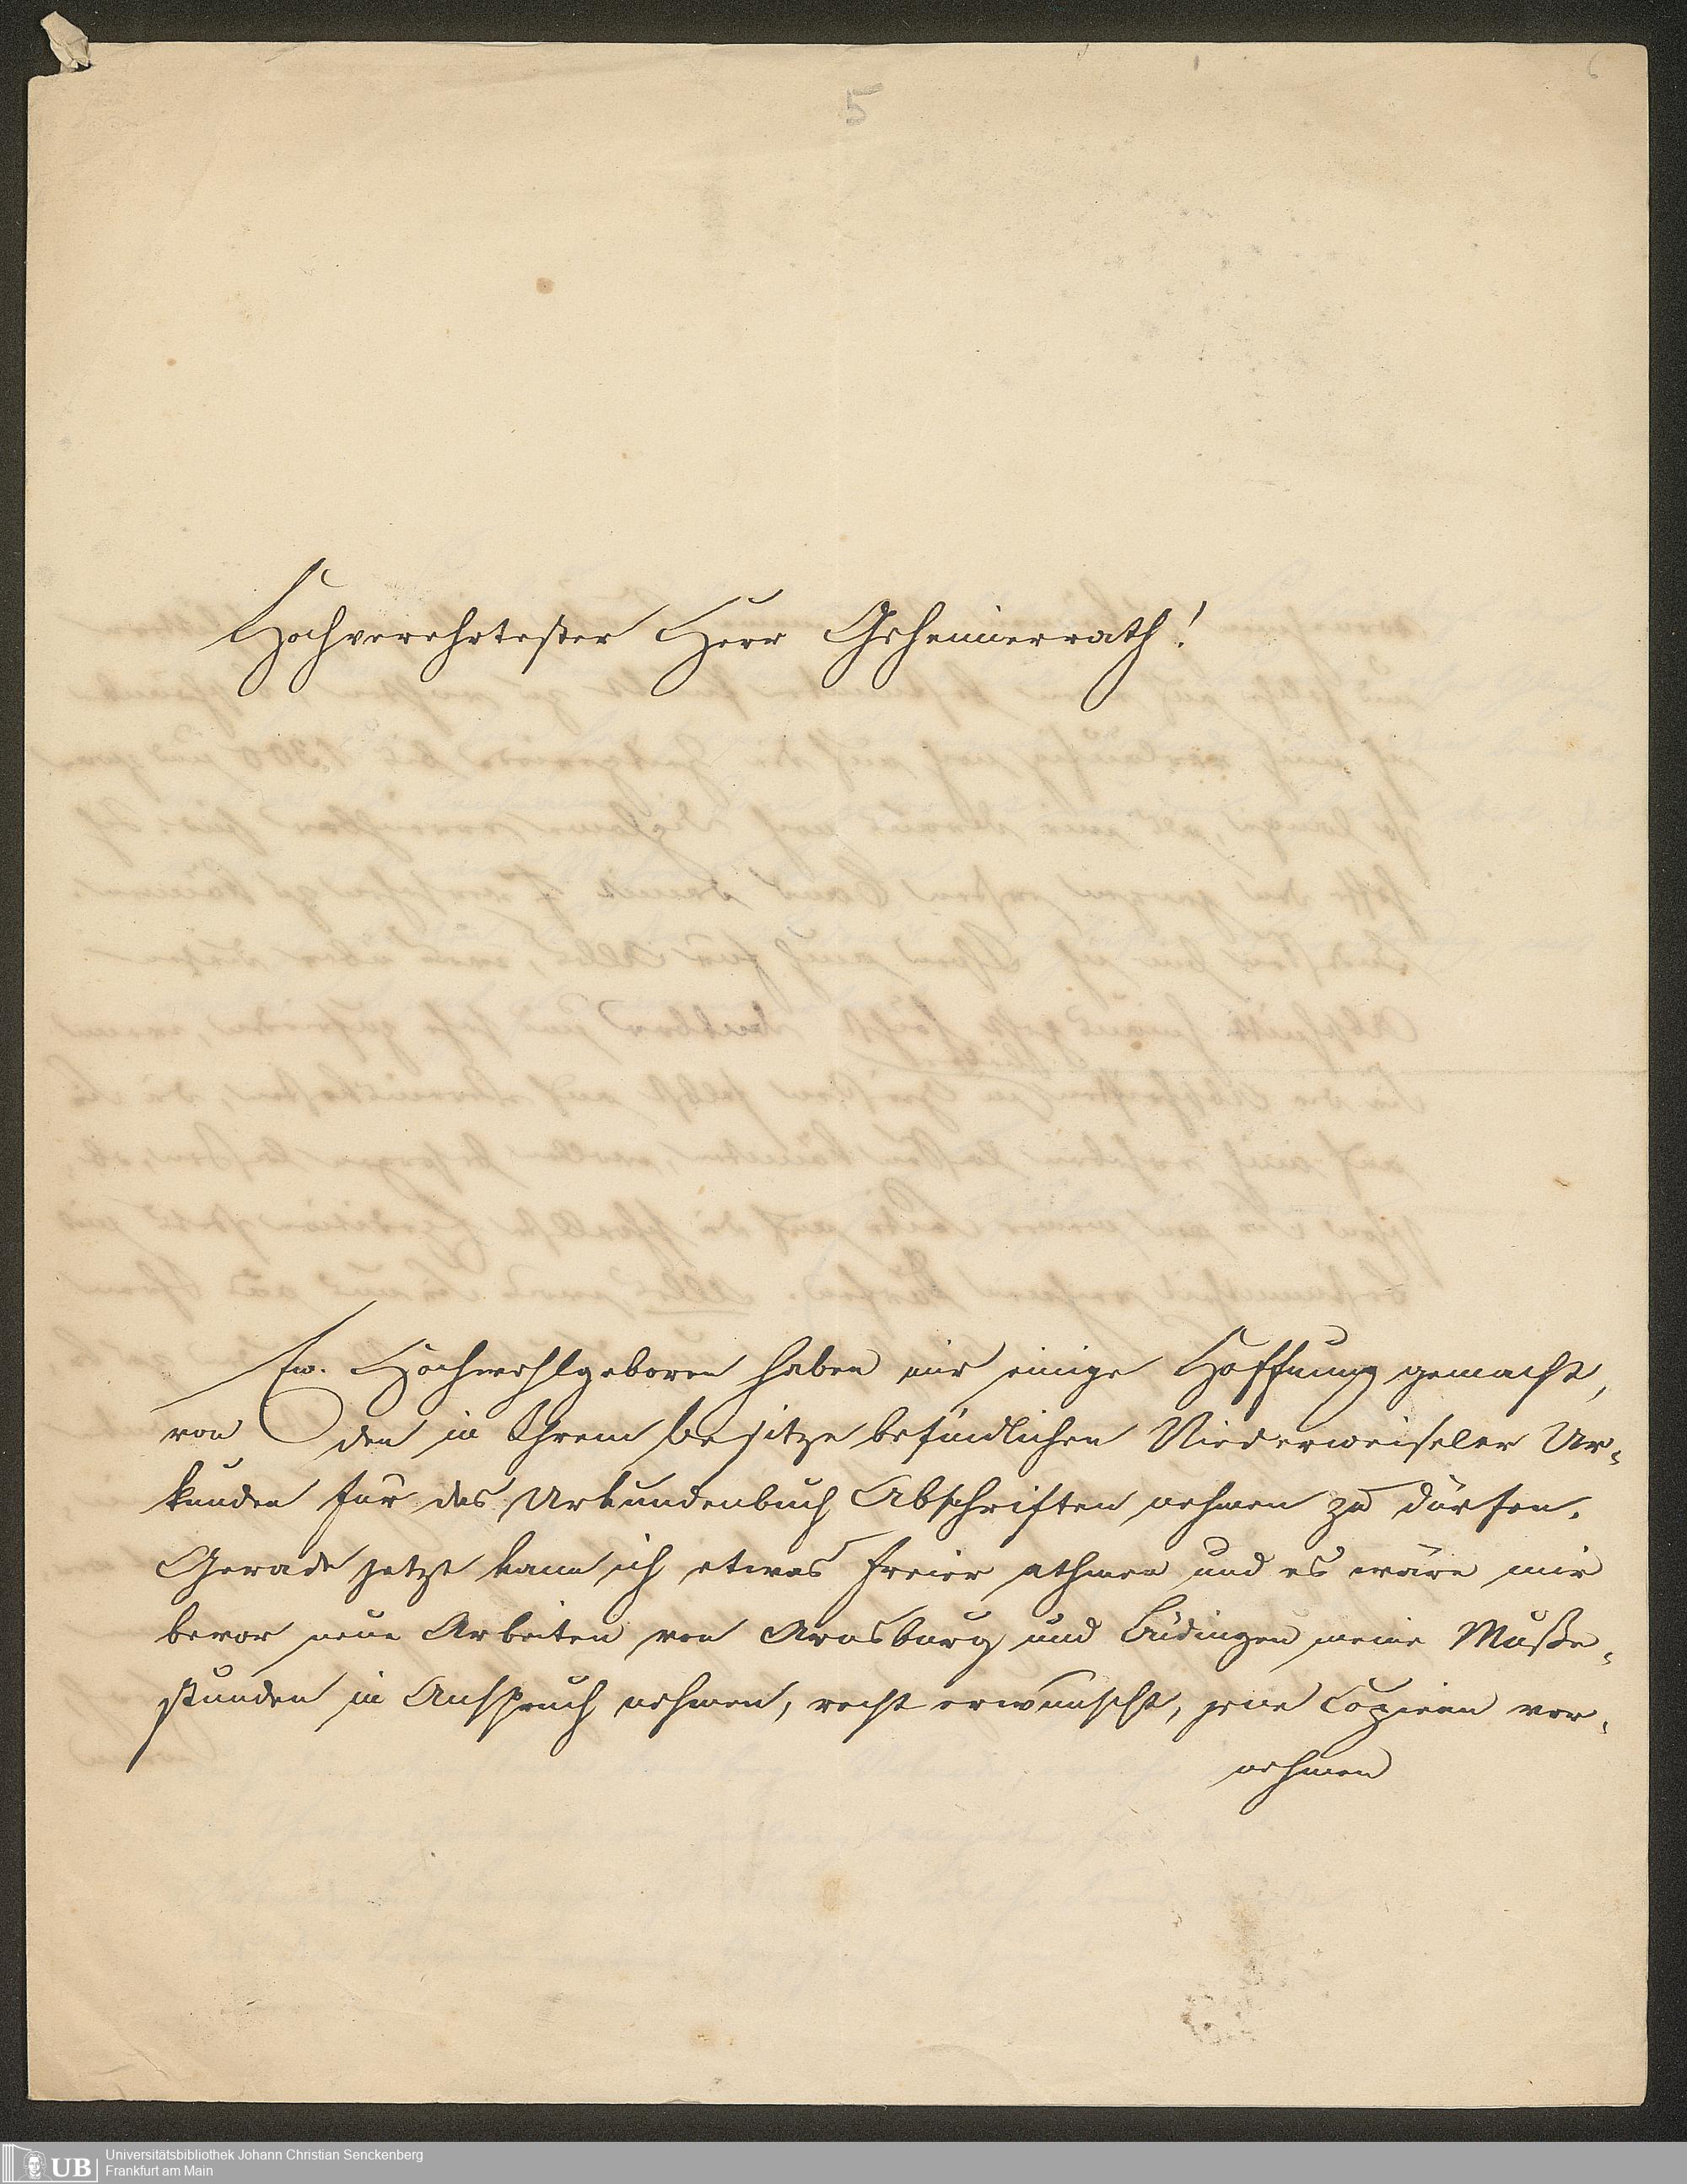 5
6
Hochverehrtester Herr Geheimerrath!
Ew. Hochwohlgeboren haben mir einige Hoffnung gemacht,
von den in Ihrem Besitze befindlichen Niederweiseler Ur-
kunden für das Urkundenbuch Abschriften nehmen zu dürfen.
Gerade jetzt kann ich etwas freier athmen und es wäre mir
bevor neue Arbeiten von Arnsburg und Büdingen meine Muße-
stunden in Anspruch nehmen, recht erwünscht, jene Copieen vor-
nehmen
UB
Universitätsbibliothek Johann Christian Senckenberg
Frankfurt am Main